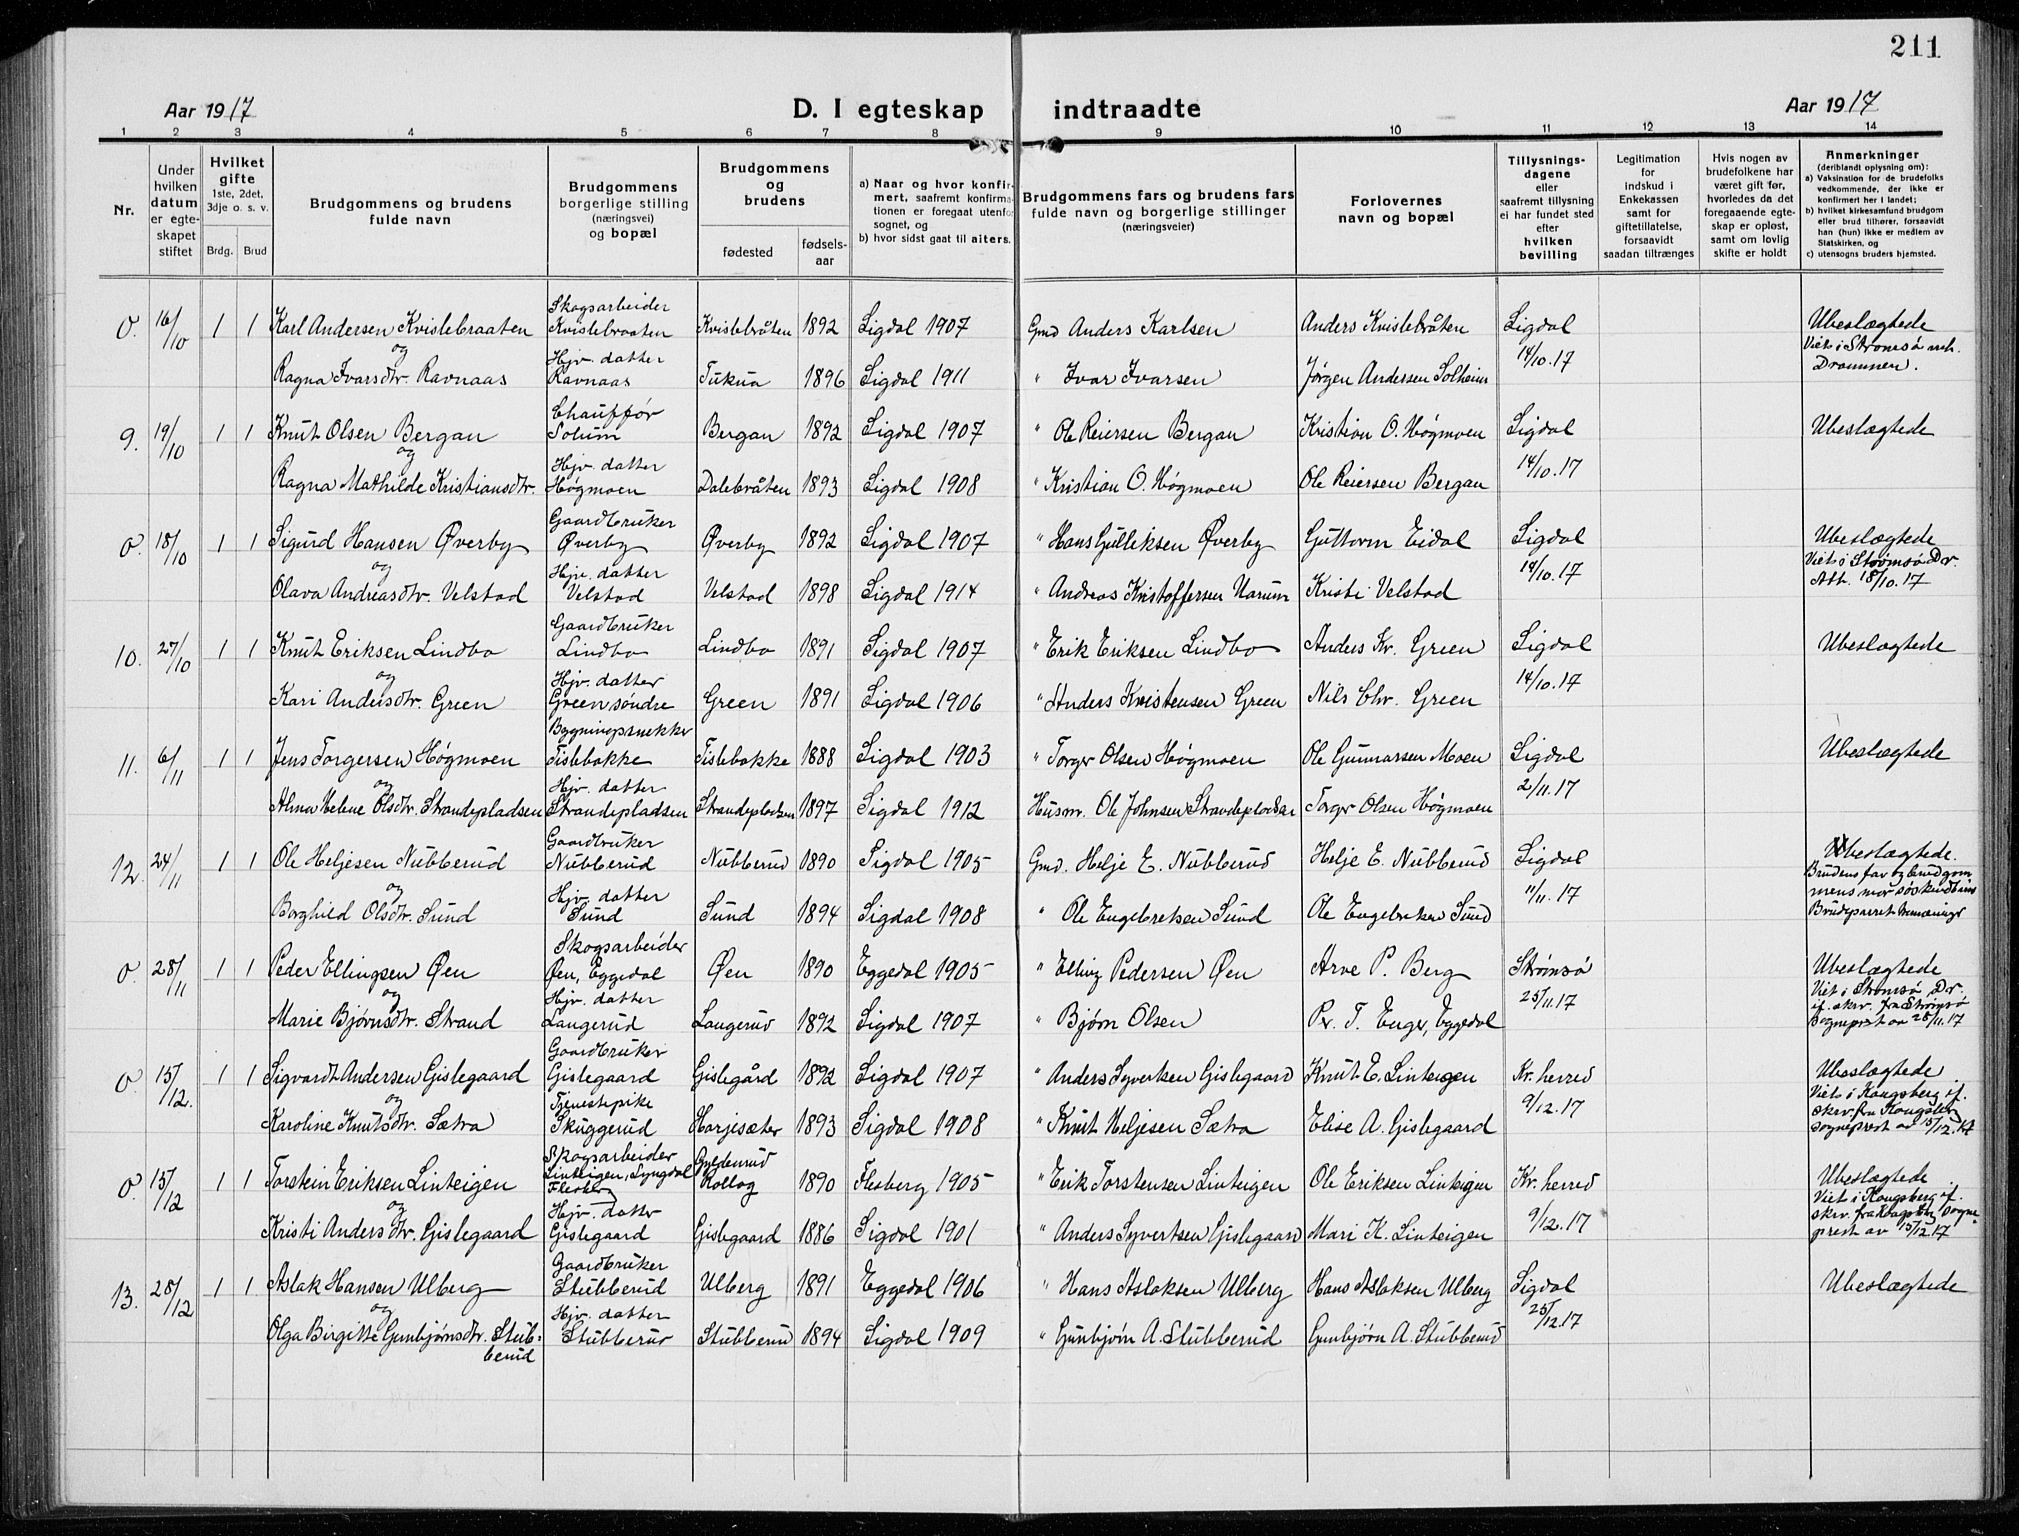 211
Aar 1917 D. I egteskap indtraadte Aar 1917
1 2 3 4 5 6 7 8 9 10 11 12 13 14
Nr.
Under hvilken datum er egteskapet stiftet
Hvilket gifte 1ste, 2det, 3dje o. s. v.
Brdg. Brud
Brudgommens og brudens fulde navn
Brudgommens borgerlige stilling (næringsvei) og bopæl
Brudgommens og brudens
fødested fødselsaar
a) Naar og hvor konfirmert, saafremt konfirmationen er foregaat utenfor sognet, og
b) hvor sidst gaat til alters.
Brudgommens fars og brudens fars fulde navn og borgerlige stillinger (næringsveier)
Forlovernes navn og bopæl
Tillysningsdagene eller saafremt tillysning ei har fundet sted efter hvilken bevilling
Legitimation for indskud i Enkekassen samt for giftetillatelse, forsaavidt saadan tiltrænges
Hvis nogen av brudefolkene har været gift før, hvorledes da det foregaaende egteskap er opløst, samt om lovlig skifte er holdt
Anmerkninger (deriblandt oplysning om):
a) Vaksination for de brudefolks vedkommende, der ikke er konfirmert her i landet;
b) hvilket kirkesamfund brudgom eller brud tilhører, forsaavidt han (hun) ikke er medlem av Statskirken, og
c) utensogns bruders hjemsted.
0. 16/10 1 1 Karl Andersen Kvislebraaten Skogsarbeider Kvislebraaten Kvislebråten 1892 Sigdal 1907 Gmd Anders Karlsen Anders Kvislebråten Sigdal 14/10.17 Ubeslægtede
og
Ragna Ivarsdtr. Ravnaas Hjv. datter Ravnaas Tukua 1896 Sigdal 1911 " Ivar Ivarsen Jørgen Andersen Solheim Viet i Strømsø Drammen.
9. 19/10 1 1 Knut Olsen Bergan Chauffør Solum Bergan 1892 Sigdal 1907 " Ole Reiersen Bergan Kristian O. Høgmoen Sigdal 14/10.17 Ubeslægtede
og
Ragna Mathilde Kristiansdtr. Hjv. datter Høgmoen Dalebråten 1893 Sigdal 1908 " Kristian O. Høgmoen Ole Reiersen Bergan
0. 18/10 1 1 Sigurd Hansen Øverby Gaardbruker Øverby Øverby 1892 Sigdal 1907 " Hans Gulleksen Øverby Guttorm Eidal Sigdal 14/10.17 Ubeslægtede
og
Olava Andreasdtr. Velstad Hjv. datter Velstad Velstad 1898 Sigdal 1914 " Andreas Kristoffersen Narum Kristi Velstad Viet i Strømsø Dr. Att. 18/10.17
10. 27/10 1 1 Knut Eriksen Lindbo Gaardbruker Lindbo Lindbo 1891 Sigdal 1907 " Erik Eriksen Lindbo Anders Kr. Green Sigdal 14/10.17 Ubeslægtede
og
Kari Andersdtr. Green Hjv. datter Green søndre Green 1891 Sigdal 1906 " Anders Kristensen Green Nils Chr. Green
11. 6/11 1 1 Jens Torgersen Høgmoen Bygningssnekker Tislebakke Tislebakke 1888 Sigdal 1903 " Torger Olsen Høgmoen Ole Gunnarsen Moen Sigdal 2/11.17 Ubeslægtede
og
Alma Helene Olsdtr. Strandepladsen Hjv. datter Strandepladsen Strandepladsen 1897 Sigdal 1912 Husm. Ole Johnsen Strandepladsen Torger Olsen Høgmoen
12. 24/11 1 1 Ole Heljesen Nubberud Gaardbruker Nubberud Nubberud 1890 Sigdal 1905 Gmd. Helje E. Nubberud Helje E. Nubberud Sigdal 11/11.17 Ubeslægtede.
og
Borghild Olsdtr. Sund Hjv. datter Sund Sund 1894 Sigdal 1908 " Ole Engebretsen Sund Ole Engebretsen Sund Brudens far og brudgommens mor søskendbarn Brudeparret tremæninger
0. 28/11 1 1 Peder Ellingsen Øen Skogsarbeider Øen, Eggedal Øen 1890 Eggedal 1905 " Elling Pedersen Øen Arve P. Berg Strømsø 25/11.17 Ubeslægtede
og
Marie Bjørnsdtr. Strand Hjv. datter Langerud Langerud 1892 Sigdal 1907 " Bjørn Olsen Per T. Enger, Eggedal Viet i Strømsø Dr. if. skr. fra Strømsø sogneprest av 28/11.17
0 15/12. 1 1 Sigvardt Andersen Gislegaard Gaardbruker Gislegaard Gislegård 1892 Sigdal 1907 " Anders Syvertsen Gislegaard Knut E. Linteigen Kr. herred 9/12.17 Ubeslægtede
og
Karoline Knutsdtr. Sætra Tjenestepike Skuggerud Harjesæter 1893 Sigdal 1908 " Knut Heljesen Sætra Elise A. Gislegaard Viet i Kongsberg if. skrv. fra Kongsberg sogneprest av 15/12.17
0. 15/12 1 1 Torstein Eriksen Linteigen Skogsarbeider Linteigen, Lyngdal Flesberg Gyldenrud Rollag 1890 Flesberg 1905 " Erik Torstensen Linteigen Ole Eriksen Linteigen Kr. herred 9/12.17 Ubeslægtede
og
Kristi Andersdtr. Gislegaard Hjv. datter Gislegaard Gislegaard 1886 Sigdal 1901 " Anders Syvertsen Gislegaard Mari K. Linteigen Viet i Kongsberg if. skrv. fra Kongsberg sogneprest av 15/12.17
13. 28/12 1 1 Aslak Hansen Ulberg Gaardbruker Stubberud Ulberg 1891 Eggedal 1906 " Hans Aslaksen Ulberg Hans Aslaksen Ulberg Sigdal 25/12.17 Ubeslægtede
og
Olga Birgitte Gunbjørnsdtr. Stubberud Hjv. datter Stubberud Stubberud 1894 Sigdal 1909 " Gunbjørn A. Stubberud Gunbjørn A. Stubberud